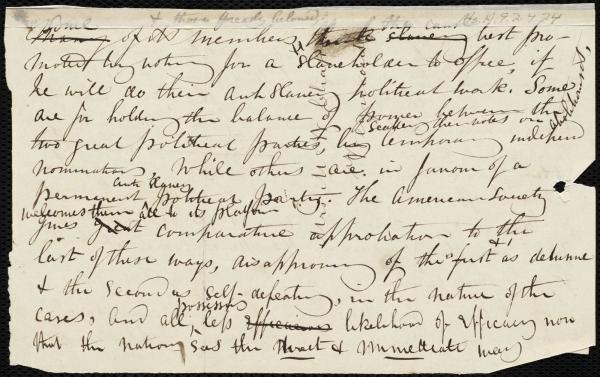 Some & those already beloved,
Many of its members think slavery best pro-
moted by voting for a slaveholder to office, if
he will do their Anti Slavery political work. Some
are for holding the balance of power between the
two great political parties, by temporary independ
nominations, While others are in favour of a
Anti Slavery
permanent political party. The American Society
welcomes them all to its platform
gives great comparative approbation to the
last of these ways, disapproving of the first as
& the second as self-defeating, in the nature of the
possesses
cases, and all, less efficacious likelihood of Efficacy now
that the nation sees the direct & immediate way